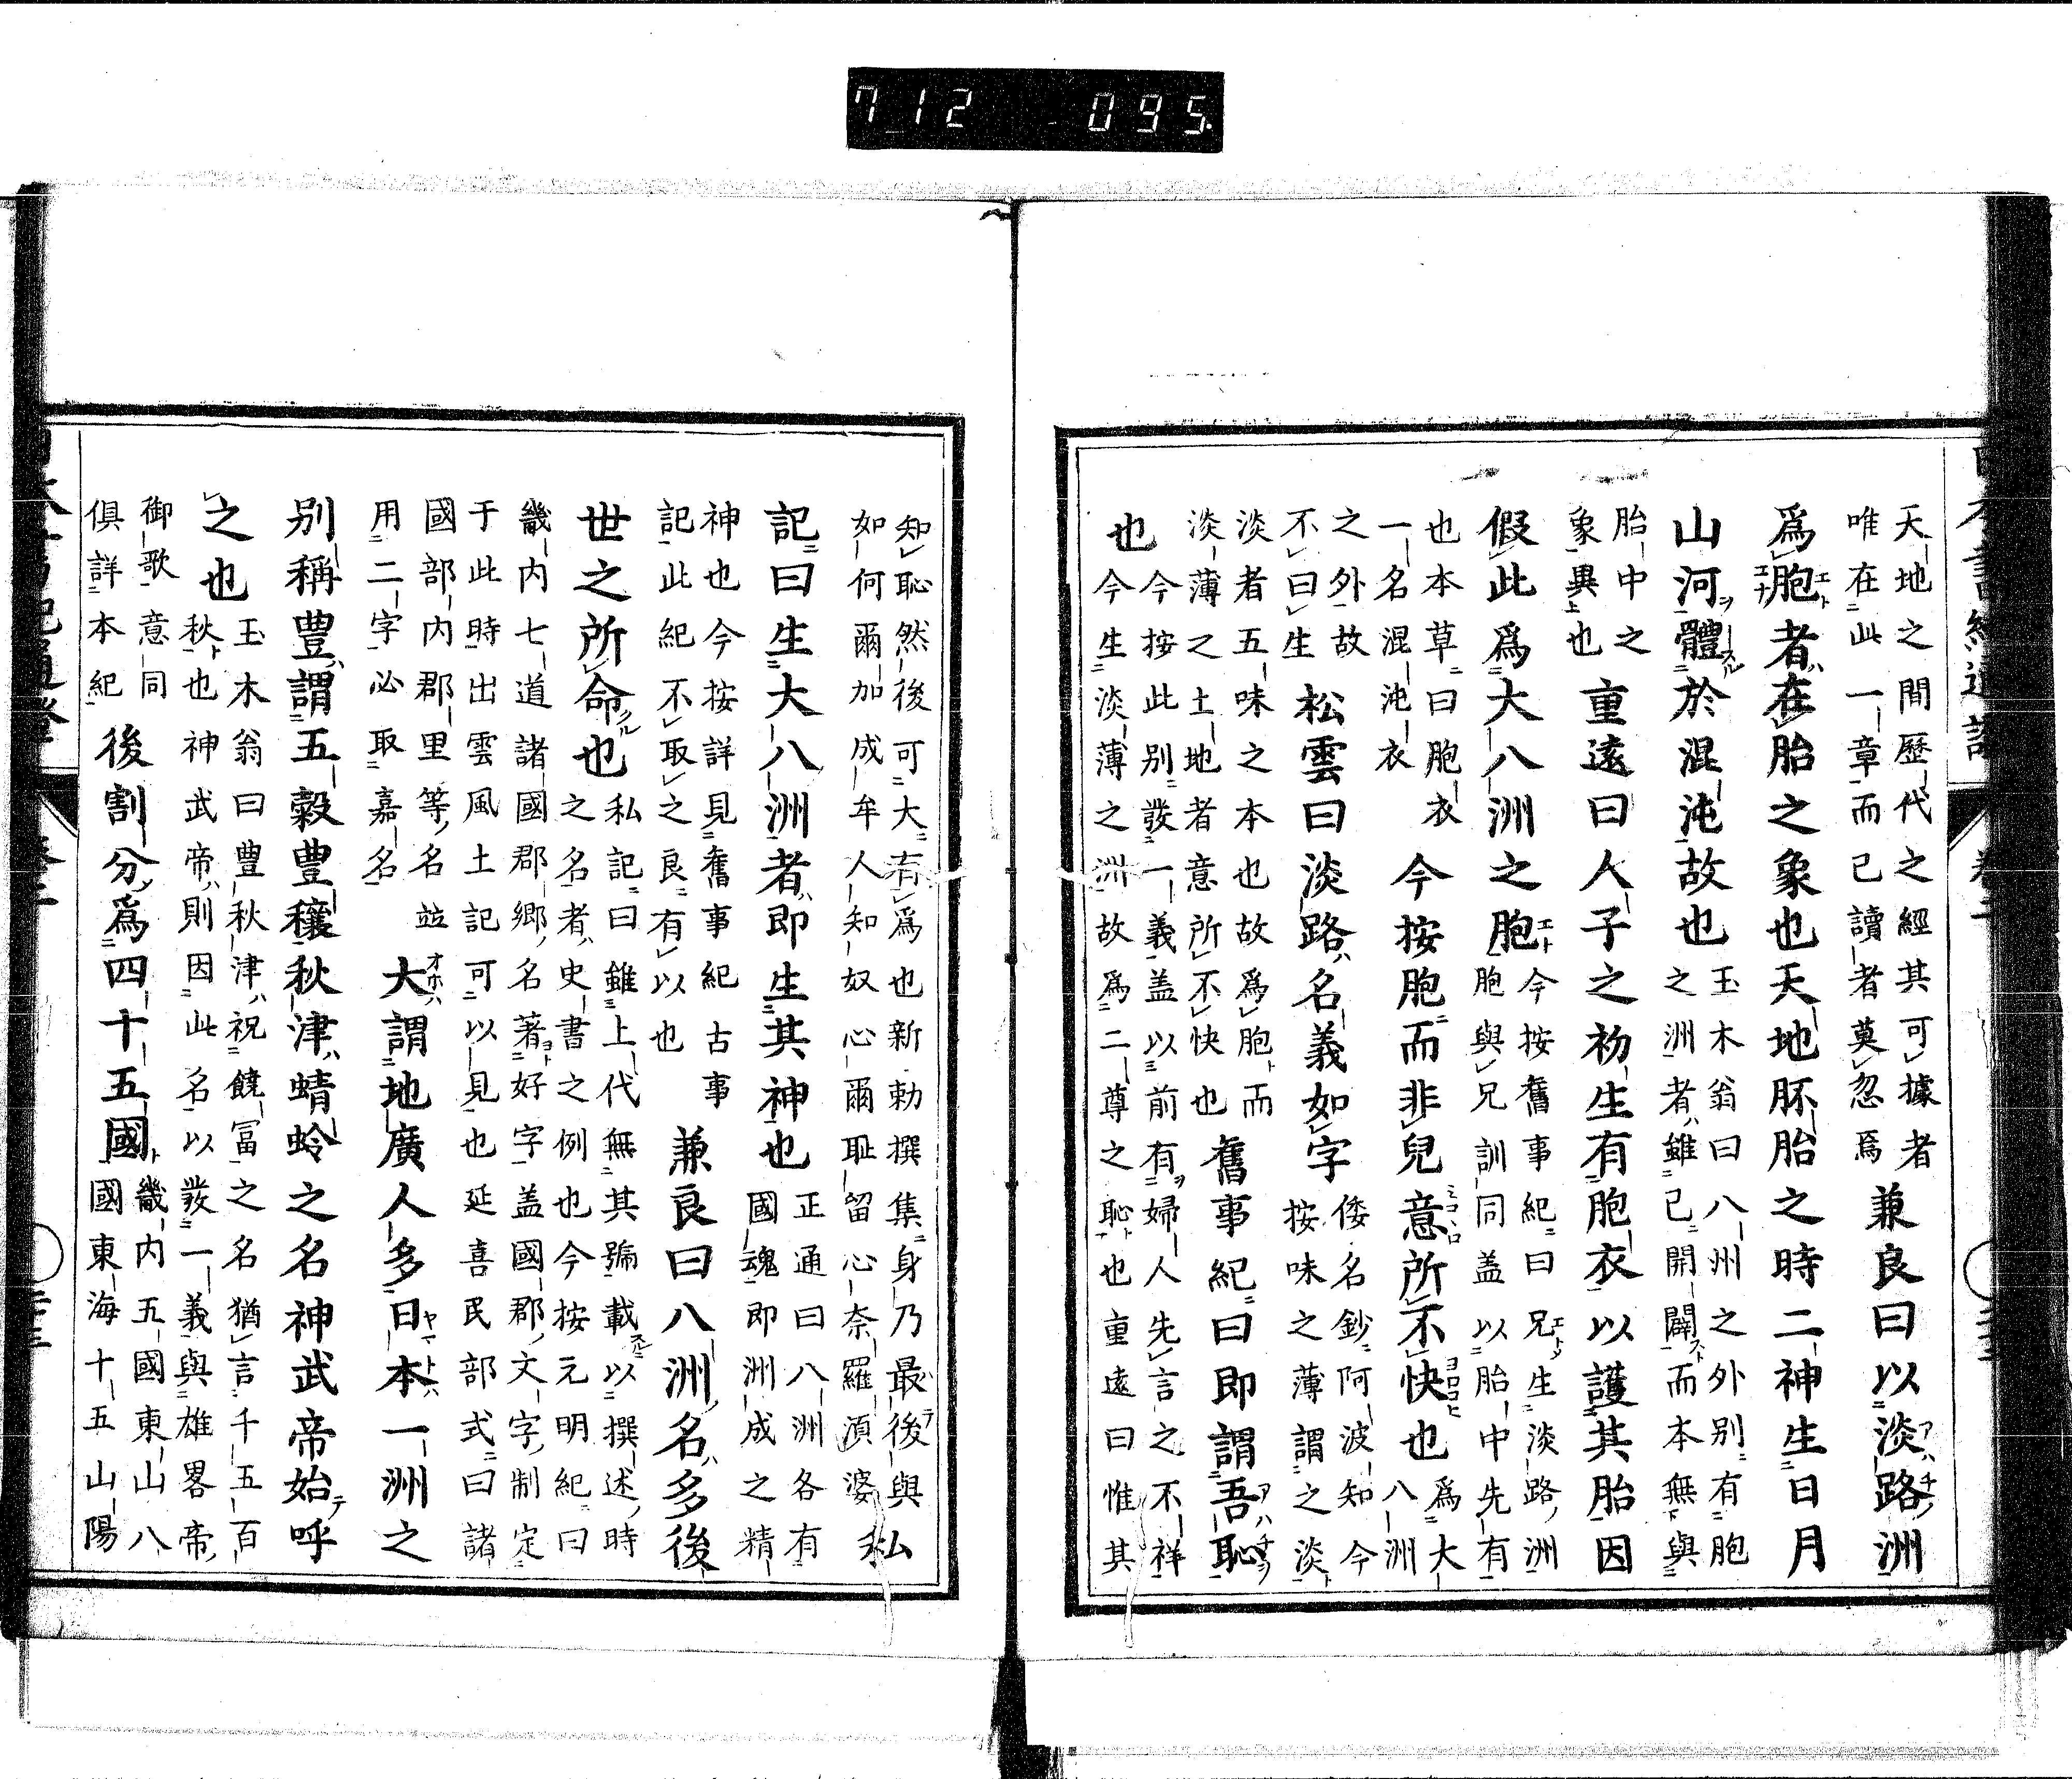 7 12 095
天地之間歷代之經其可據者
唯在此一章而已讀者莫忽焉
兼良曰以淡路洲
爲胞者在胎之象也天地胚胎之時二神生日月
山河體於混沌故也
玉木翁曰八州之外別有胞
之洲者雖已開闢而本無與
胎中之
象異也
重遠曰人子之初生有胞衣以護其胎因
假此爲大八洲之胞
今按舊事紀曰兄生淡路洲
胞與兄訓同盖以胎中先有
也本草曰胞衣
一名混沌衣
今按胞而非兒意所不快也
爲大
八洲
之外故
不曰生
松雲曰淡路名義如字
倭名鈔阿波知今
按味之薄謂之淡
淡者五味之本也故爲胞而
淡薄之土地者意所不快也
舊事紀曰即謂吾恥
也
今按此別發一義盖以前有婦人先言之不祥
今生淡薄之洲故爲二尊之恥也重遠曰惟其
知恥然後可大有爲也新勅撰集身乃最後與
如何爾加成牟人知奴心爾耻留心奈羅湏婆
私
記曰生大八洲者即生其神也
正通曰八洲各有
國魂即洲成之精
神也今按詳見舊事紀古事
記此紀不取之良有以也
兼良曰八洲名多後
世之所命也
私記曰雖上代無其號載以撰述時
之名者史書之例也今按元明紀曰
畿内七道諸國郡鄉名著好字盖國郡文字制定
于此時出雲風土記可以見也延喜民部式曰諸
國部内郡里等名並
用二字必取嘉名
大謂地廣人多日本一洲之
别稱豊謂五穀豊穰秋津蜻蛉之名神武帝始呼
之也
玉木翁曰豊秋津祝饒冨之名猶言千五百
秋也神武帝則因此名以發一義與雄畧帝
御歌意同
俱詳本紀
後割分爲四十五國
畿内五國東山八
國東海十五山陽